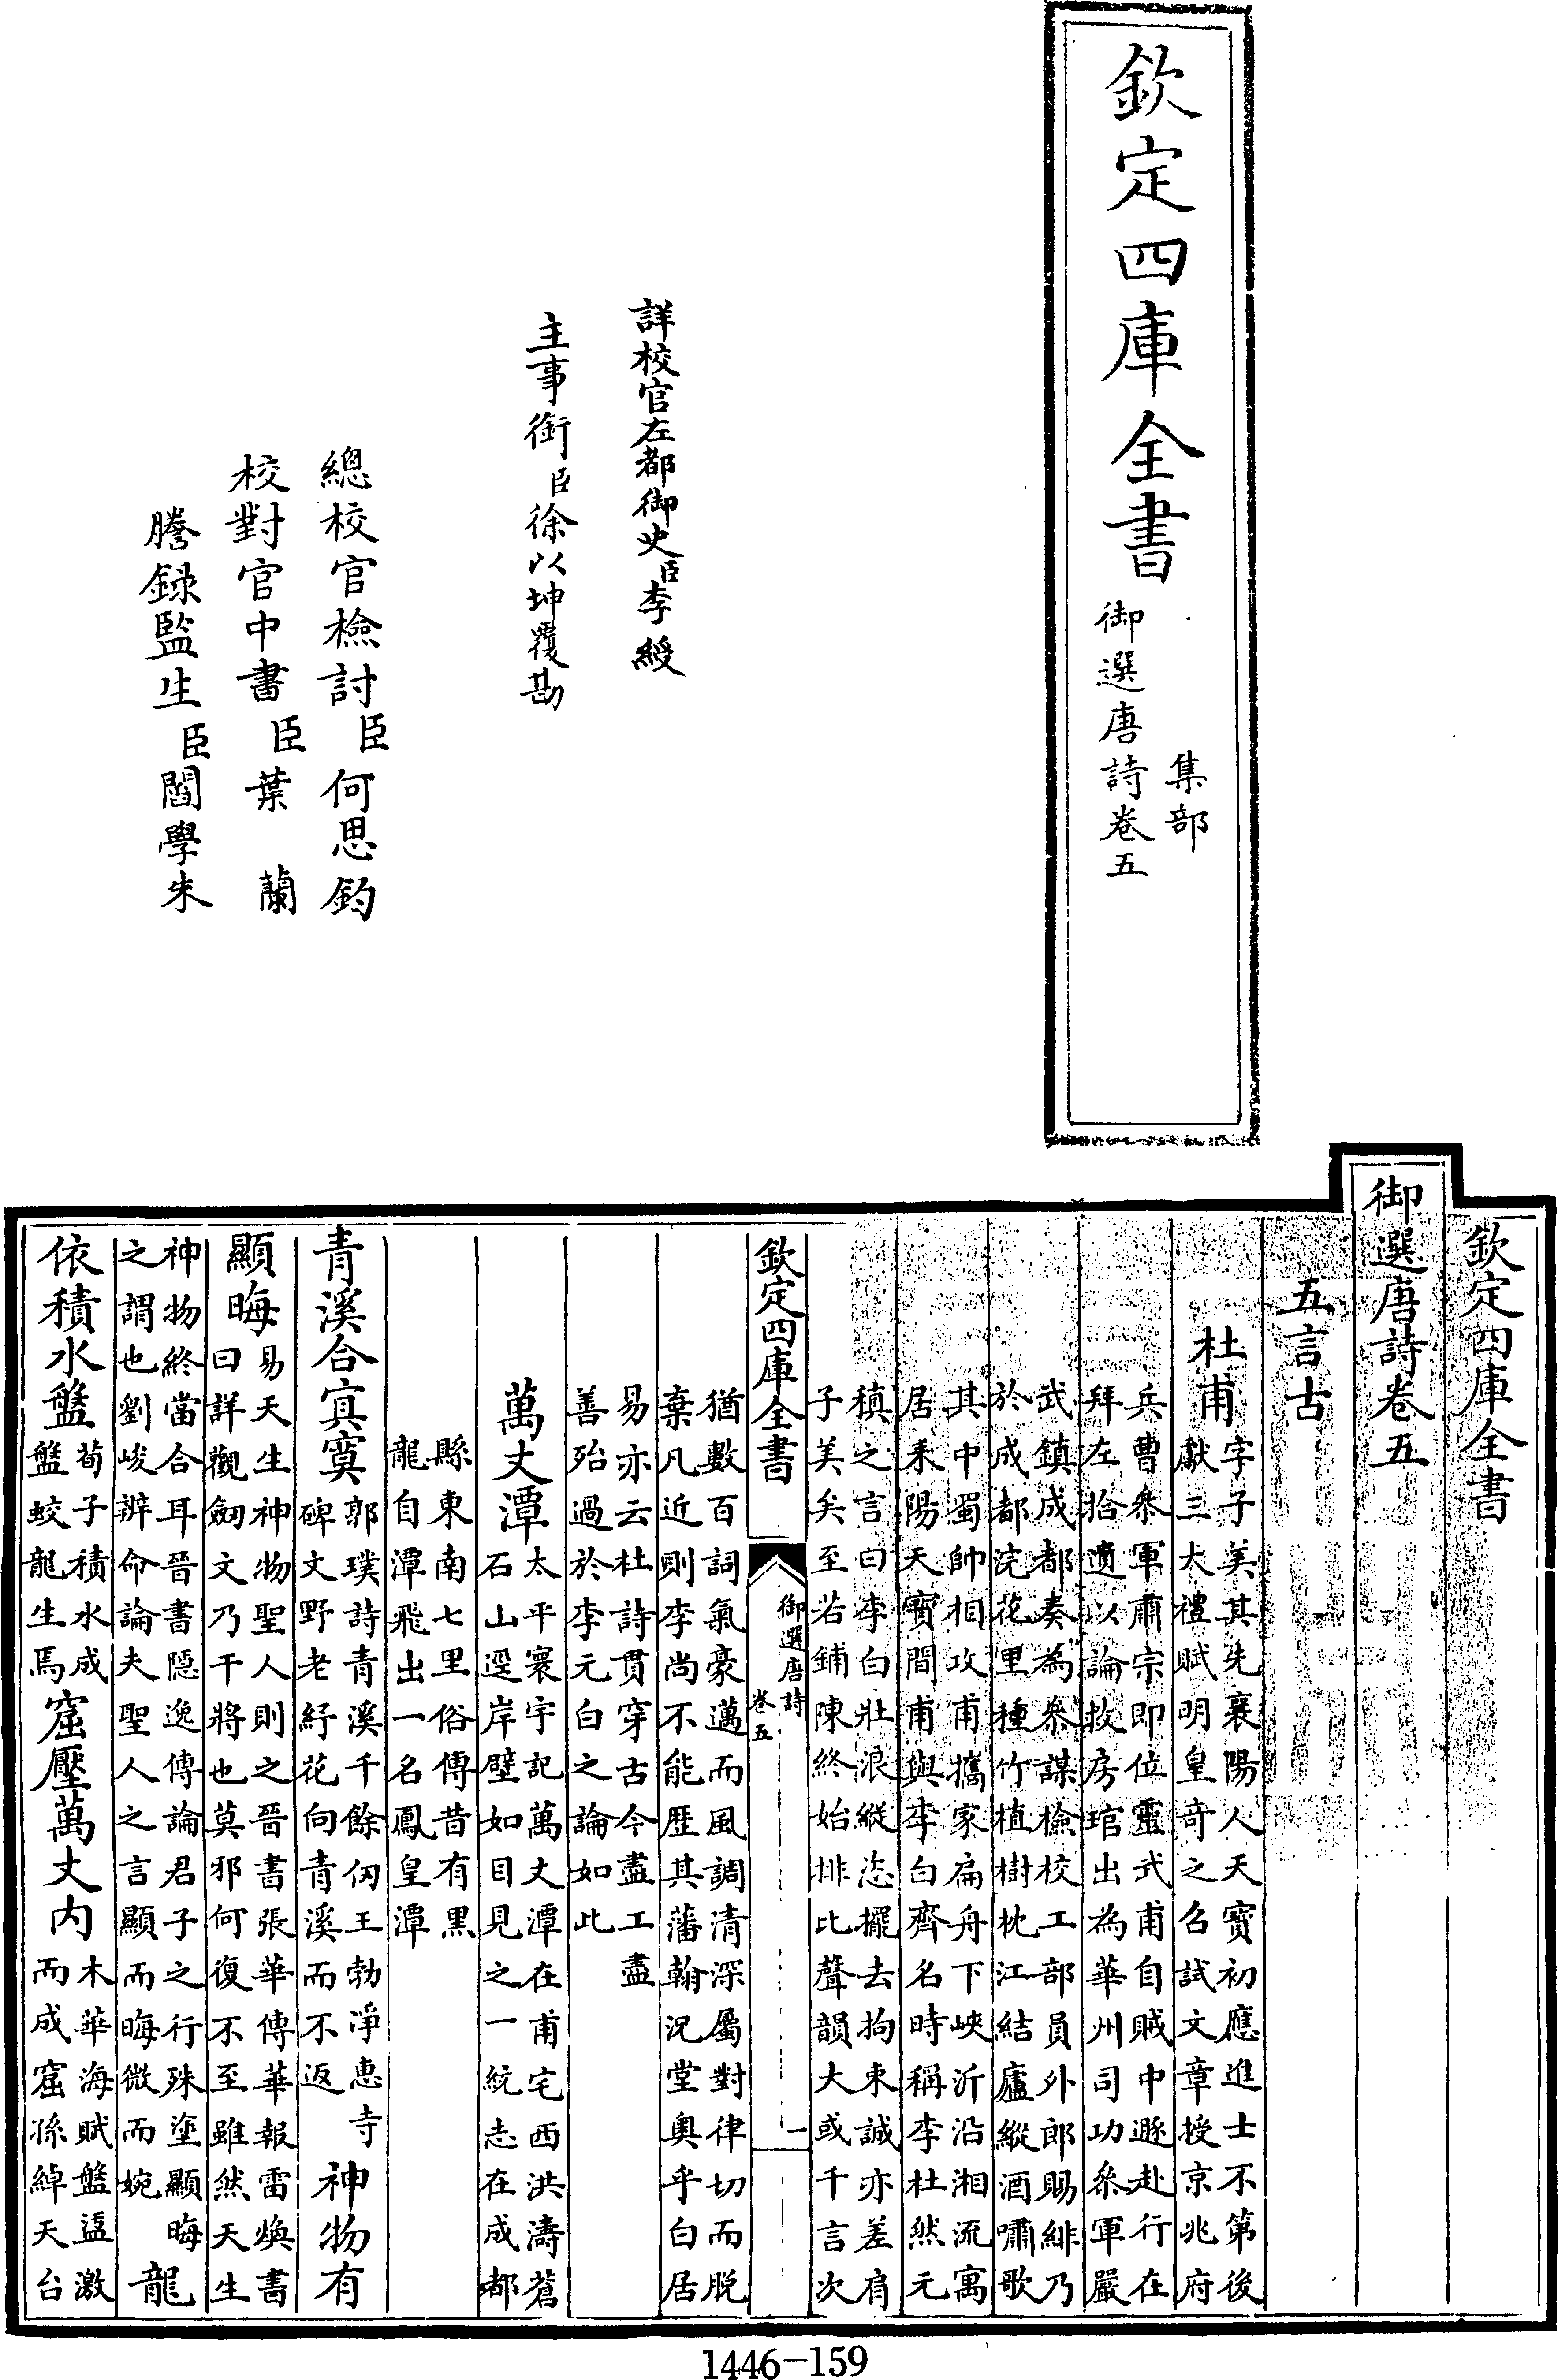 欽定四庫全書
集部
御選唐詩卷五
詳校官左都御史臣李綬
主事銜臣徐以坤覆勘
總校官檢討臣何思鈞
校對官中書臣葉蘭
謄録監生臣閻學朱
欽定四庫全書
御選唐詩卷五
五言古
杜甫
字子美其先襄陽人天寶初應進士不第後
獻三大禮賦明皇竒之召試文章授京兆府
兵曹叅軍肅宗即位靈武甫自賊中遯赴行在
拜左拾遺以論救房琯出為華州司功叅軍嚴
武鎮成都奏為叅謀檢校工部員外郎賜緋乃
於成都浣花里種竹植樹枕江結廬縱酒嘯歌
其中蜀帥相攻甫攜家扁舟下峽沂沿湘流寓
居耒陽天寶間甫與李白齊名時稱李杜然元
稹之言曰李白壯浪縱恣擺去拘束誠亦差肩
子美矣至若鋪陳終始排比聲韻大或千言次
欽定四庫全書
御選唐詩
卷五
一
猶數百詞氣豪邁而風調清深屬對律切而脱
棄凡近則李尚不能歴其藩翰況堂奥乎白居
易亦云杜詩貫穿古今盡工盡
善殆過於李元白之論如此
萬丈潭
太平寰宇記萬丈潭在甫宅西洪濤蒼
石山逕岸壁如目見之一統志在成都
縣東南七里俗傳昔有黑
龍自潭飛出一名鳳皇潭
青溪合㝠寞
郭璞詩青溪千餘仭王勃淨惠寺
碑文野老紓花向青溪而不返
神物有
顯晦
易天生神物聖人則之晉書張華傳華報雷煥書
曰詳觀劒文乃干將也莫邪何復不至雖然天生
神物終當合耳晉書隱逸傳論君子之行殊塗顯晦
之謂也劉峻辨命論夫聖人之言顯而晦微而婉
龍
依積水盤
荀子積水成
盤蛟龍生焉
窟壓萬丈内
木華海賦盤盓激
而成窟孫綽天台
1446-159